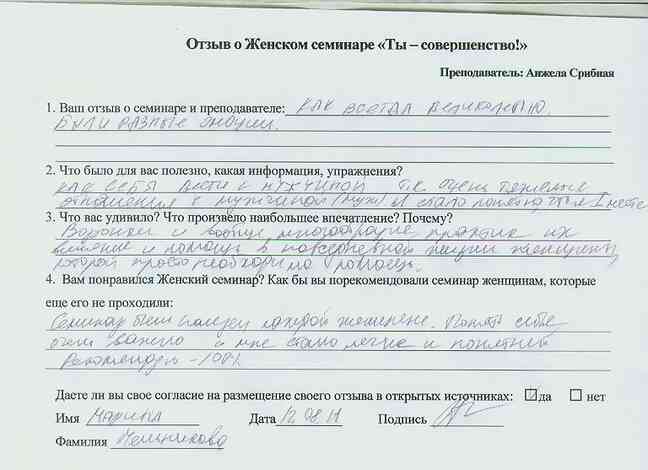 Отзыв о Женском семинаре «Ты – совершенство!»
Преподаватель: Анжела Срибная
1. Ваш отзыв о семинаре и преподавателе: КАК ВСЕГДА ВЕЛИКОЛЕПНО.
БЫЛИ РАЗНЫЕ ЭМОЦИИ.
2. Что было для вас полезно, какая информация, упражнения?
КАК СЕБЯ ВЕСТИ С МУЖЧИНОЙ Т.К. ОЧЕНЬ ТЯЖЕЛЫЕ
ОТНОШЕНИЯ С МУЖЧИНОЙ (МУЖ) И СТАЛО ПОНЯТНО месте
3. Что вас удивило? Что произвело наибольшее впечатление? Почему?
Воронки и вообще многообразие практик их
влияние и помощь в повседневной жизни женщины,
которой просто необходимо помогать.
4. Вам понравился Женский семинар? Как бы вы порекомендовали семинар женщинам, которые
еще его не проходили:
Семинар был полезен каждой женщине. Понять себя
очень важно и мне стало легче и понятней
Рекомендую – 100%
Даете ли вы свое согласие на размещение своего отзыва в открытых источниках: да нет
Имя Марина Дата 12.08.11 Подпись
Фамилия Мельникова